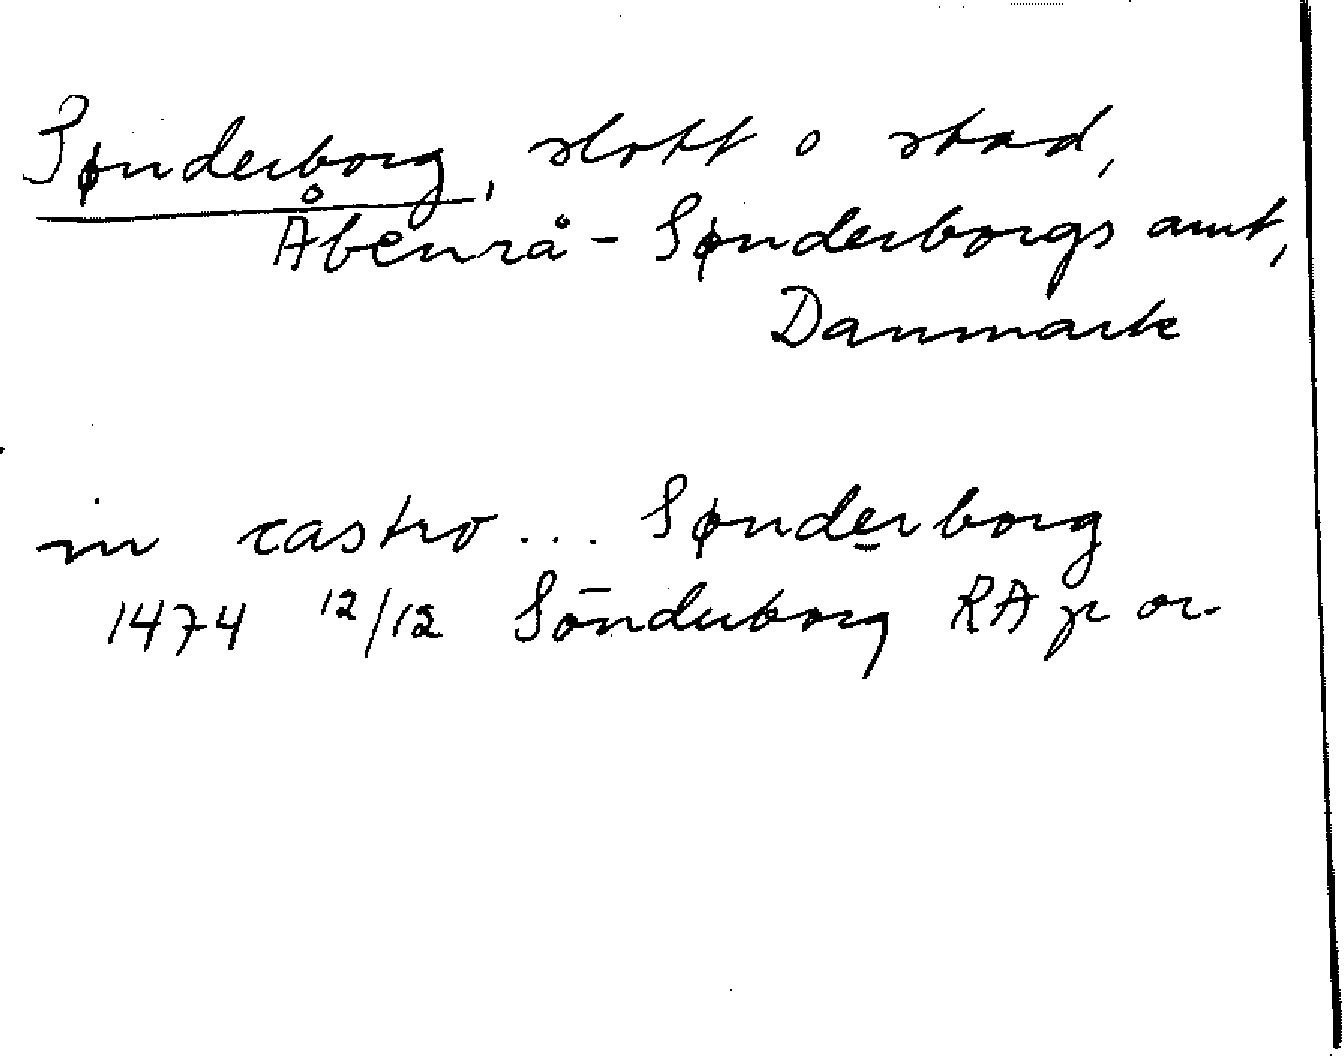 Sønderborg, slott o stad,
Åbenrå - Sønderborgs amt,
Danmark
in castro ... Sønderborg
1474 12/12 Sönderborg RA p or